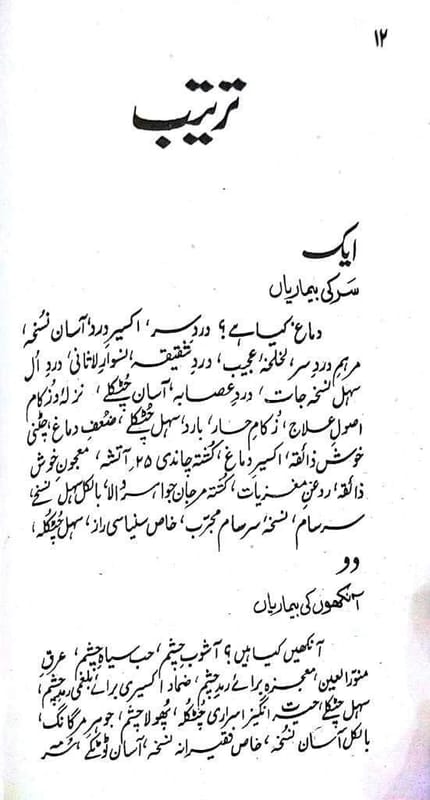 ۱۲
ترتیب
ایک
سَر کی بیماریاں
دماغ کیا ہے؟ دردِ سر، اکسیر درد، آسان نسخہ،
مرہم دردِ سر، لخلخہ عجیب، دردِ شقیقہ، نسوار لاثانی، دردِ اُل
سہل نسخہ جات، دردِ عصابہ، آسان چٹکلے، نزلہ و زکام
اصولِ علاج، زکام حار، بارد، سہل چٹکلے، ضعفِ دماغ، چٹنی
خوش ذائقہ، اکسیر دماغ، کشتہ چاندی ۲۵ آتشہ، معجون خوش
ذائقہ، روغنِ مغزیات، کشتہ مرجان جواہر والا، بالکل سہل نسخے،
سرسام، نسخہ سرسام مجرّب، خاص سنیاسی راز، سہل چٹکلہ،
دو
آنکھوں کی بیماریاں
آنکھیں کیا ہیں؟ آشوبِ چشم، حب سیاہ چشم، عرقِ
منور العین، معجزہ برائے رمد چشم، ضماد اکسیری برائے بلغمی رمد چشم،
سہل چٹکلے، حیرت انگیز اسراری چٹکلہ، پھولا چشم، جوہر مرگانگ،
بالکل آسان نسخہ، خاص فقیرانہ نسخہ، آسان ٹوٹکے، سُر